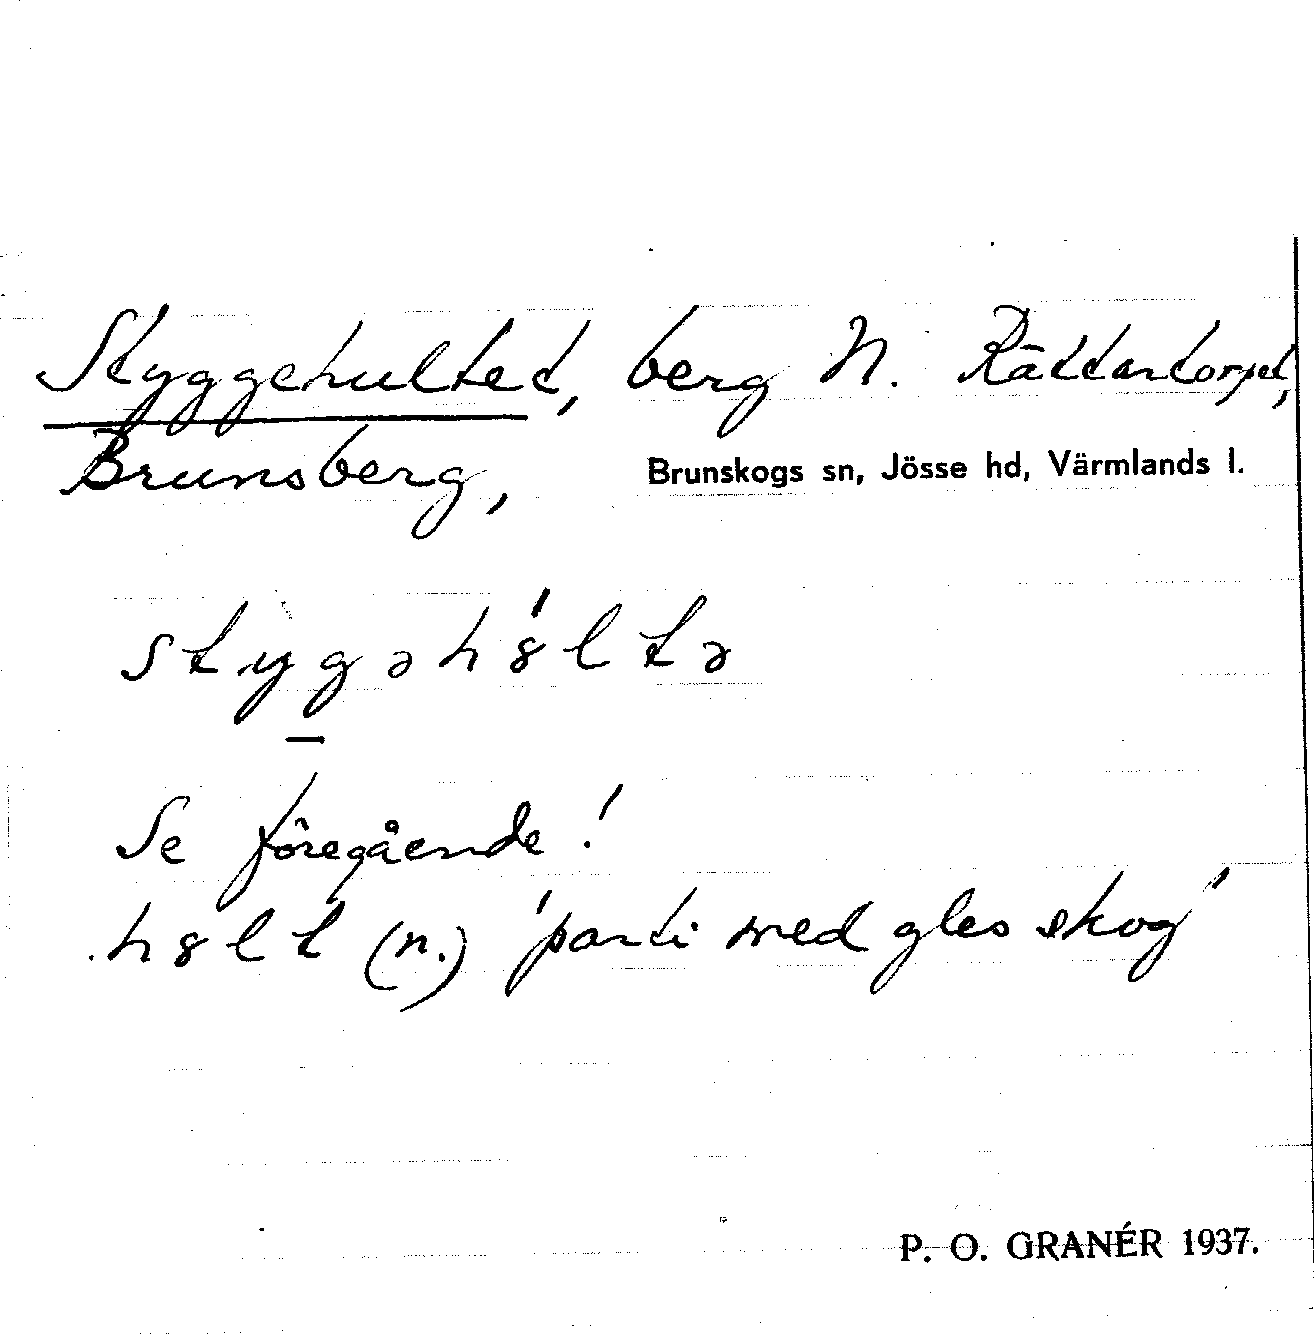 Styggehultet, berg N. Rättartorpet,
Brunsberg, Brunskogs sn, Jösse hd, Värmlands l.
stygəh8́ltə
Se föregående!
h8lt (n.) 'parti med gles skog'
P. O. GRANÉR 1937.